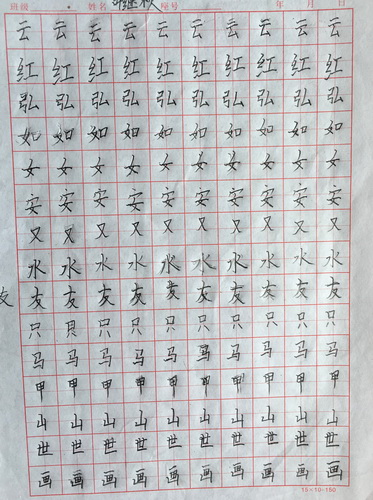 班级 姓名 座号 年 月 日
云 云 云 云 云 云 云 云 云 云
红 红 红 红 红 红 红 红 红 红
弘 弘 弘 弘 弘 弘 弘 弘 弘 弘
如 如 如 如 如 如 如 如 如 如
女 女 女 女 女 女 女 女 女 女
安 安 安 安 安 安 安 安 安 安
又 又 又 又 又 又 又 又 又 又
水 水 水 水 水 水 水 水 水 水
友 友 友 友 友 友 友 友 友 友 友
只 只 只 只 只 只 只 只 只 只
马 马 马 马 马 马 马 马 马 马
甲 甲 甲 甲 甲 甲 甲 甲 甲 甲
山 山 山 山 山 山 山 山 山 山
世 世 世 世 世 世 世 世 世 世
画 画 画 画 画 画 画 画 画 画
15×10=150